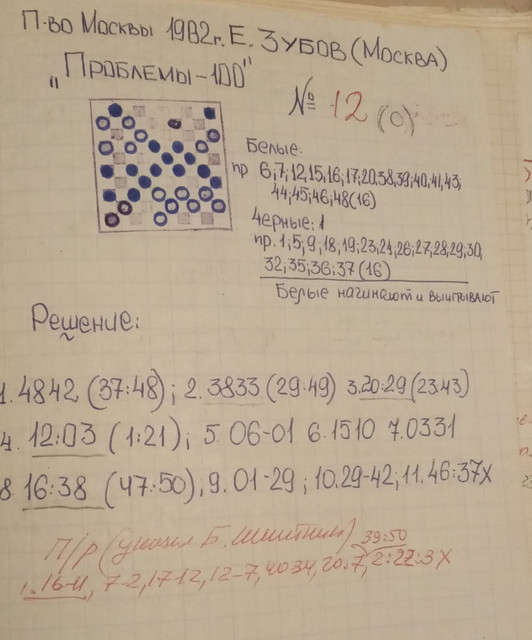 П-во Москвы 1982г. Е. Зубов (Москва)
„Проблемы-100"
№ 12 (0)
Белые:
пр 6,7,12,15,16,17,20,38,39,40,41,43,
44,45,46,48 (16)
Черные: 1
пр. 1,5,9,18,19,23,24,26,27,28,29,30,
32,35,36,37 (16)
Белые начинают и выигрывают
Решение:
1. 4842 (37:48); 2. 3833 (29:49) 3.20:29 (23:43)
4. 12:03 (1:21); 5 06-01 6.1510 7.0331
8. 16:38 (47:50), 9. 01-29; 10.29-42; 11. 46:37X
П/р (указал Б. 39:50
1. 16-11, 7-2, 17-12, 12-7, 4034, 20:7, 2:22:3X